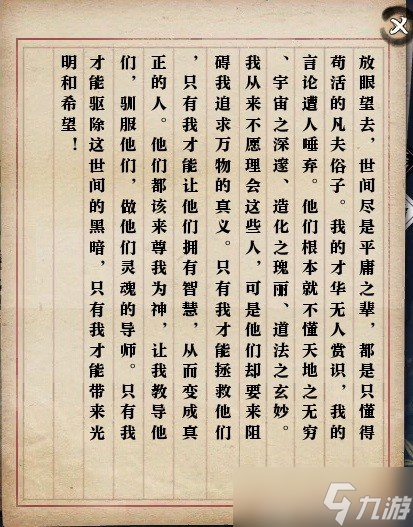 放眼望去，世间尽是平庸之辈，都是只懂得
苟活的凡夫俗子。我的才华无人赏识，我的
言论遭人唾弃。他们根本就不懂天地之无穷
、宇宙之深邃、造化之瑰丽、道法之玄妙。
我从来不愿理会这些人，可是他们却要来阻
碍我追求万物的真义。只有我才能拯救他们
，只有我才能让他们拥有智慧，从而变成真
正的人。他们都该来尊我为神，让我教导他
们，驯服他们，做他们灵魂的导师。只有我
才能驱除这世间的黑暗，只有我才能带来光
明和希望！
九游